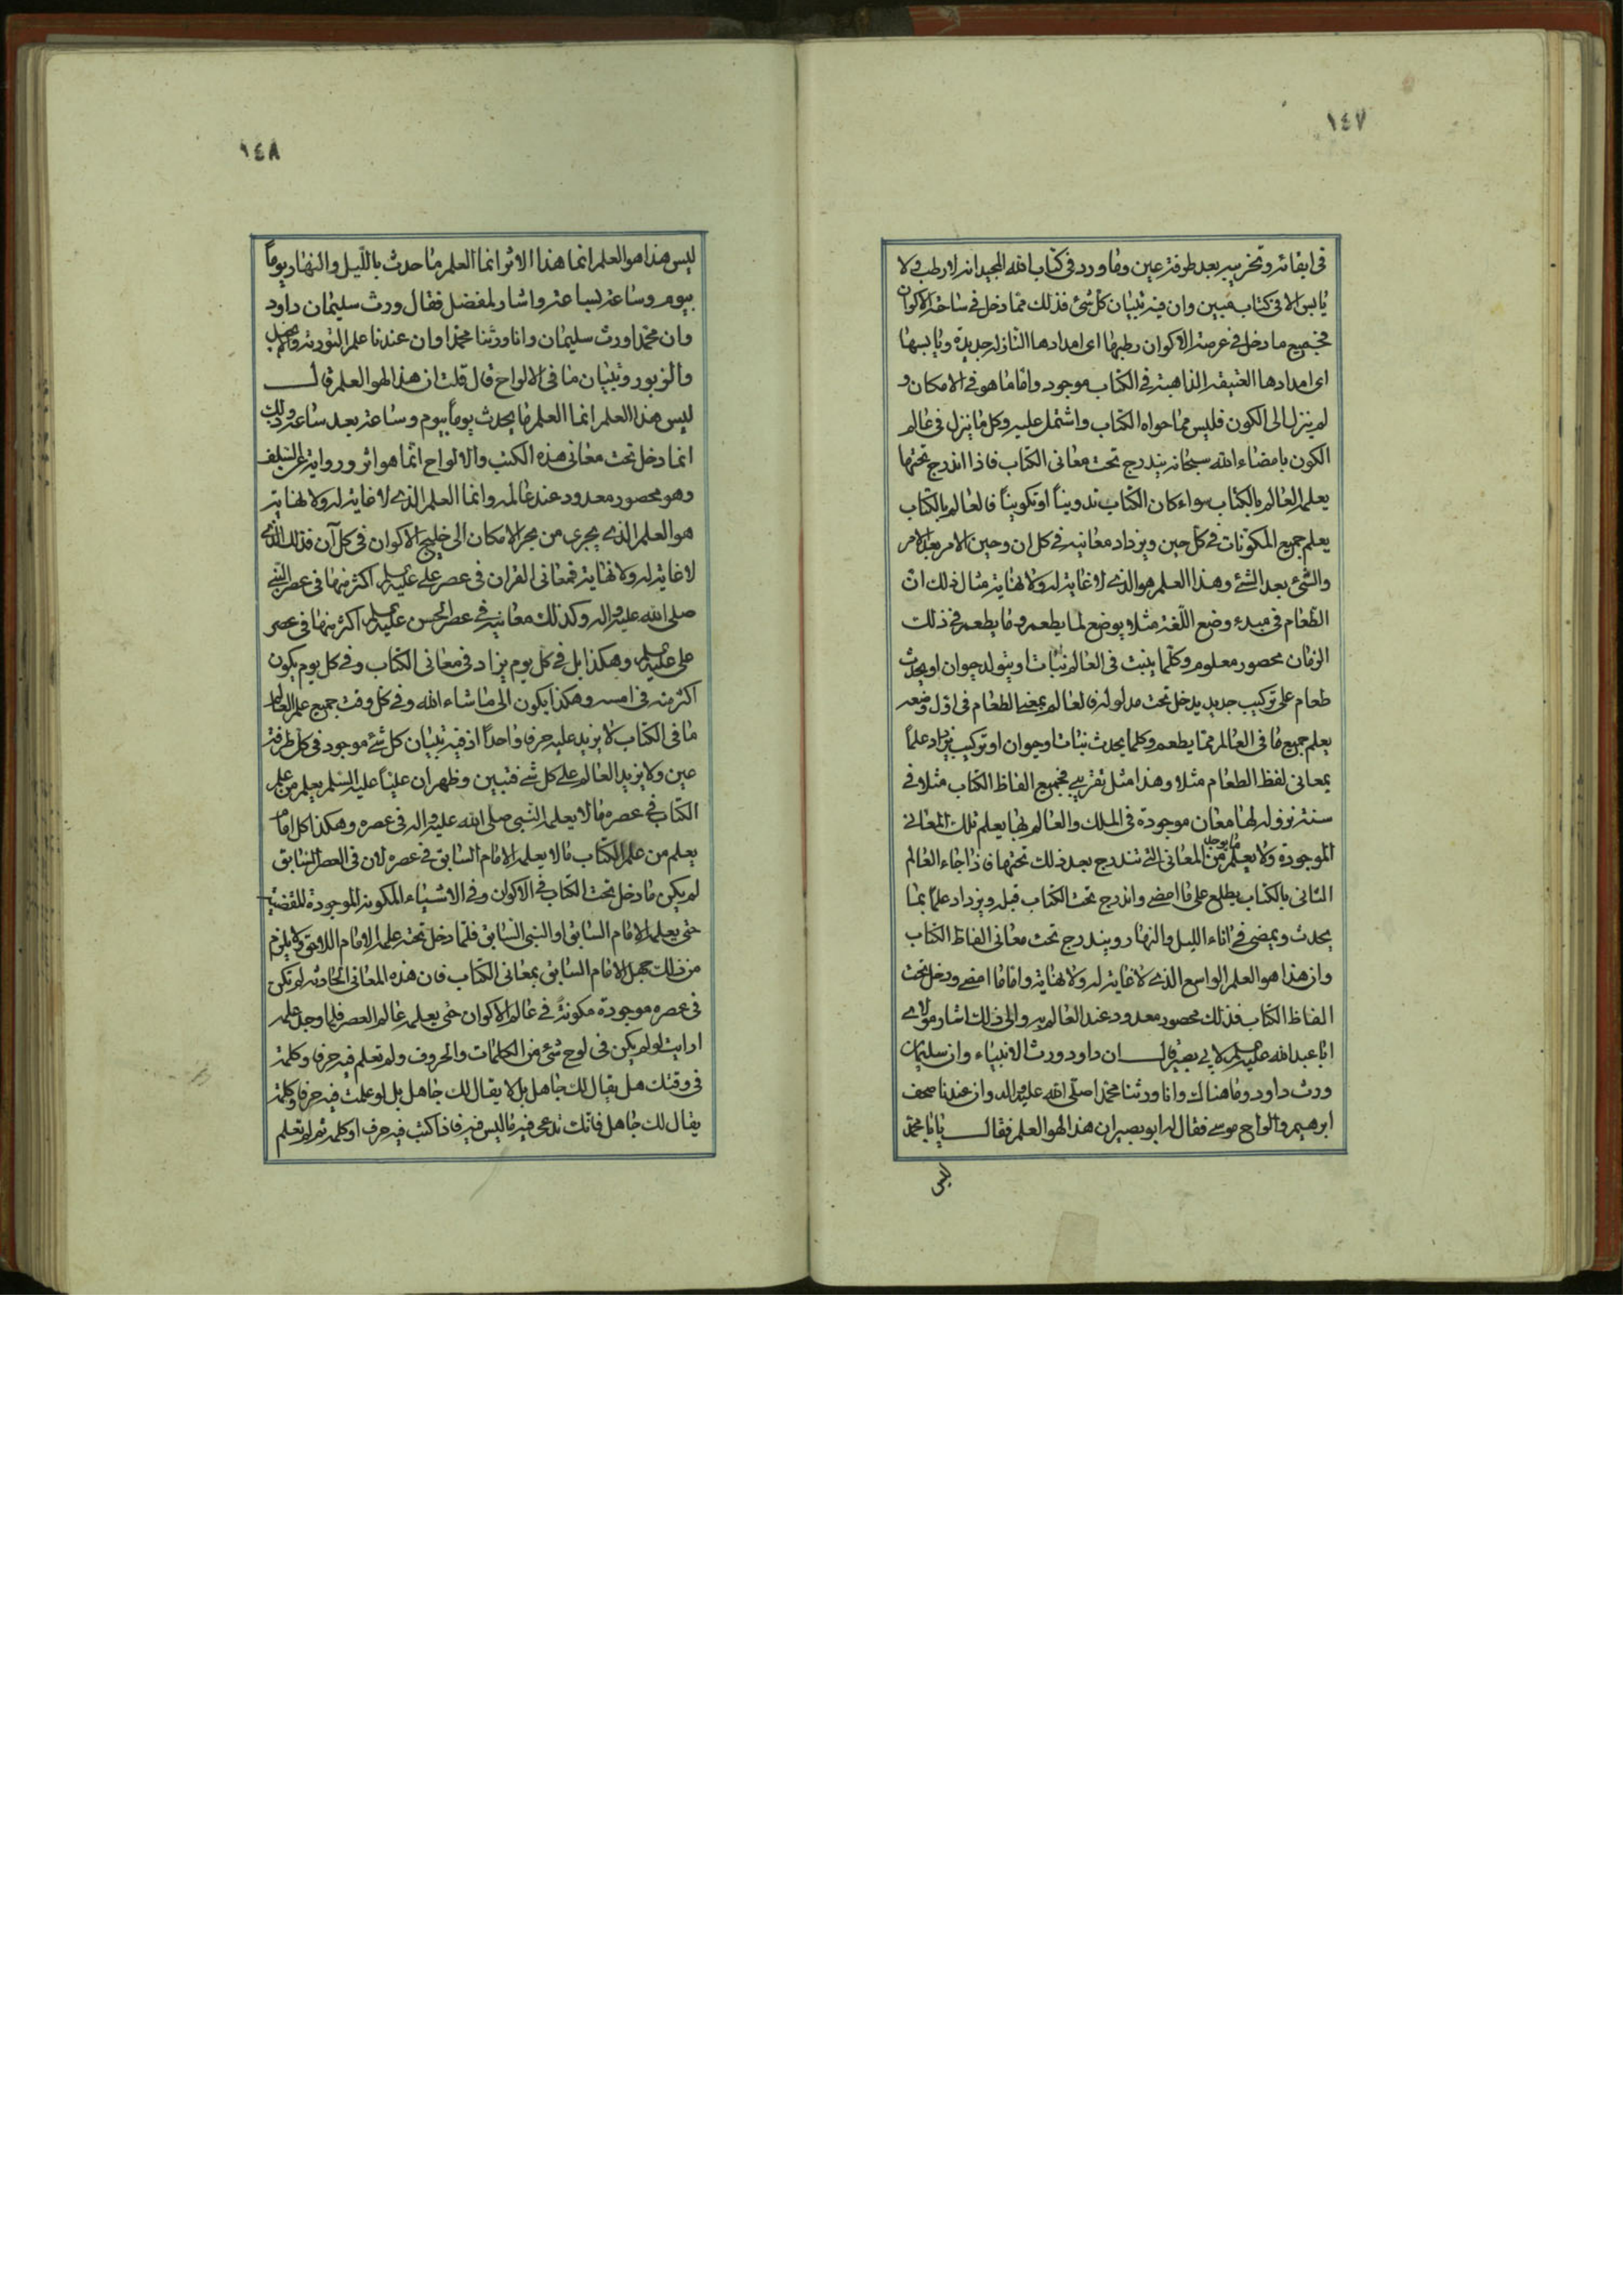 ١٤٧
في ابقائه وتخريبه بعد طرفة عين وما ورد في كتاب الله المجيد انه لا رطب ولا
يابس الا في كتاب مبين وان فيه تبيان كل شئ فذلك مما دخل في ساحة الاكوان
فجميع ما دخل في عرصة الاكوان رطبها اى امدادها النازلة جديدة ويابسها
اى امدادها العتيقة الذاهبة في الكتاب موجود واما ما هو في الامكان و
لم ينزل الى الكون فليس مما حواه الكتاب واشتمل عليه وكل ما ينزل في عالم
الكون بامضاء الله سبحانه يندرج تحت معاني الكتاب فاذا اندرج تحتها
يعلم العالم بالكتاب سواء كان الكتاب تدوينيا او تكوينيا فالعالم بالكتاب
يعلم جميع المكونات في كل حين ويزداد معانيه في كل ان وحين الامر بعد الامر
والشئ بعد الشئ وهذا العلم هو الذي لا غاية له ولا نهاية مثال ذلك ان
الطعام في مبدء وضع اللغة مثلا يوضع لما يطعم وما يطعم في ذلك
الزمان محصور معلوم وكلما ينبت في العالم نبات او يتولد حيوان او يحدث
طعام على تركيب جديد يدخل تحت مدلوله فالعالم بمعنى الطعام في اول وضعه
يعلم جميع ما في العالم مما يطعم وكلما يحدث نبات او حيوان او تركيب يزداد علماً
بمعاني لفظ الطعام مثلا وهذا مثل تقريبي فجميع الفاظ الكتاب مثلا في
سنة نزوله لها معان موجودة في الملك والعالم بها يعلم تلك المعاني
الموجودة ولا يعلم ما يوجد من المعاني التي تندرج بعد ذلك تحتها فاذا جاء العالم
الثاني بالكتاب يطلع على ما امضى واندرج تحت الكتاب قبله ويزداد علما بما
يحدث ويمضي في اناء الليل والنهار ويندرج تحت معاني الفاظ الكتاب
وان هذا هو العلم الواسع الذي لا غاية له ولا نهاية واما ما امضى ودخل تحت
الفاظ الكتاب فذلك محصور معدود عند العالم به والى ذلك اشار مولاي
ابا عبد الله عليه السلم لابي بصير قال ان داود ورث الانبياء وان سليمان
ورث داود وما هناك وانا ورثنا محمدا صلى الله عليه واله وان عندنا صحف
ابرهيم والواح موسى فقال له ابو بصير ان هذا لهو العلم فقال يا با محمد
ليس
١٤٨
ليس هذا هو العلم انما هذا الاثر انما العلم ما حدث بالليل والنهار يوماً
بيوم وساعة بساعة واشار لمفضل فقال ورث سليمان داود
وان محمدا ورث سليمان وانا ورثنا محمدا وان عندنا علم التورية والانجيل
والزبور وتبيان ما في الالواح قال قلت ان هذا لهو العلم قال
ليس هذا العلم انما العلم ما يحدث يوماً بيوم وساعة بعد ساعة وذلك
انما دخل تحت معاني هذه الكتب والالواح انما هو اثر ورواية عن السلف
وهو محصور معدود عند عالمه وانما العلم الذي لا غاية له ولا نهاية
هو العلم الذي يجري من بحر الامكان الى خليج الاكوان في كل آن فذلك الذي
لا غاية له ولا نهاية فمعاني القران في عصر علي عليه السلم اكثر منها في عصر النبي
صلى الله عليه واله وكذلك معانيه في عصر الحسن عليه السلم اكثر منها في عصر
علي عليه السلم وهكذا بل في كل يوم يزاد في معاني الكتاب وفي كل يوم يكون
اكثر منه في امسه وهكذا يكون الى ما شاء الله وفي كل وقت جميع علم العالم
ما في الكتاب لا يزيد عليه حرفا واحداً اذ فيه تبيان كل شئ موجود في كل طرفة
عين ولا يزيد العالم على كل شئ فتبين وظهر ان علياً عليه السلم يعلم من علم
الكتاب في عصره ما لا يعلمه النبي صلى الله عليه واله في عصره وهكذا كل امام
يعلم من علم الكتاب ما لا يعلمه الامام السابق في عصره لان في العصر السابق
لم يكن ما دخل تحت الكتاب في الاكوان وفي الاشياء المكونة الموجودة المقضية
حتى يعلمه الامام السابق او النبي السابق فلما دخل تحته علمه الامام اللاحق ولا يلزم
من ذلك جهل الامام السابق بمعاني الكتاب فان هذه المعاني الحادثة لم تكن
في عصره موجودة مكونة في عالم الاكوان حتى يعلمه عالم العصر فلما وجد علمه
ارايت لو لم يكن في لوح شئ من الكلمات والحروف ولم تعلم فيه حرفا وكلمة
في وقتك هل يقال لك جاهل بل لا يقال لك جاهل بل لو علمت فيه حرفا وكلمة
يقال لك جاهل فانك تدعي فيه ما ليس فيه فاذا كتب فيه حرف او كلمة ثم لم تعلم